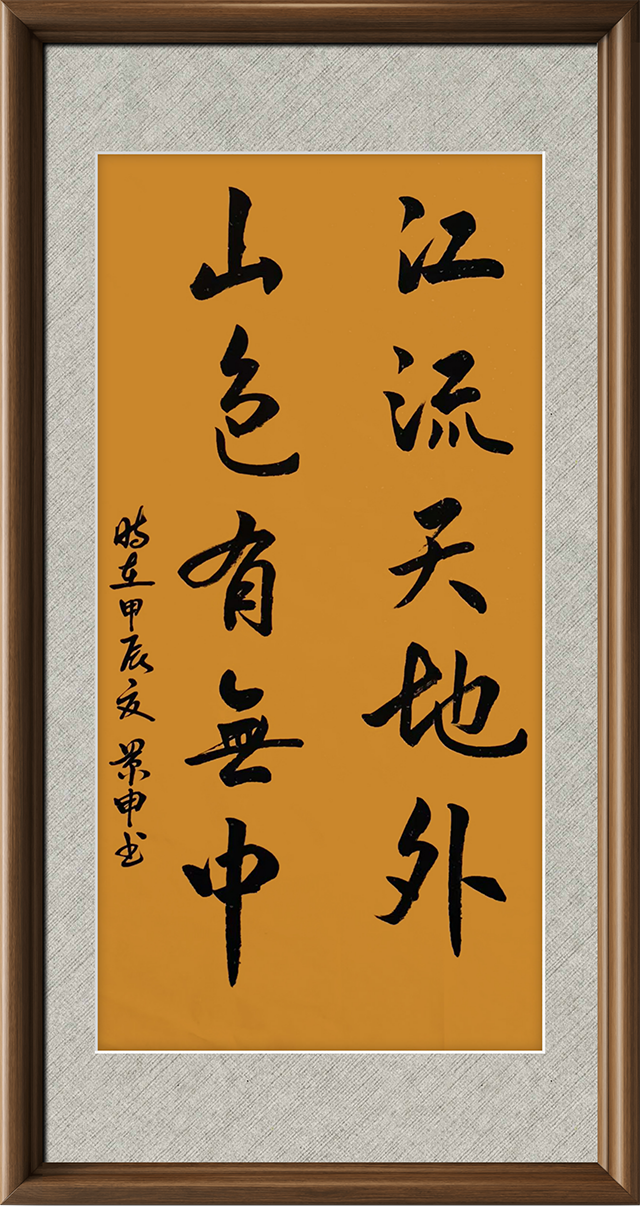 江流天地外
山色有無中
時在甲辰夏 景申书